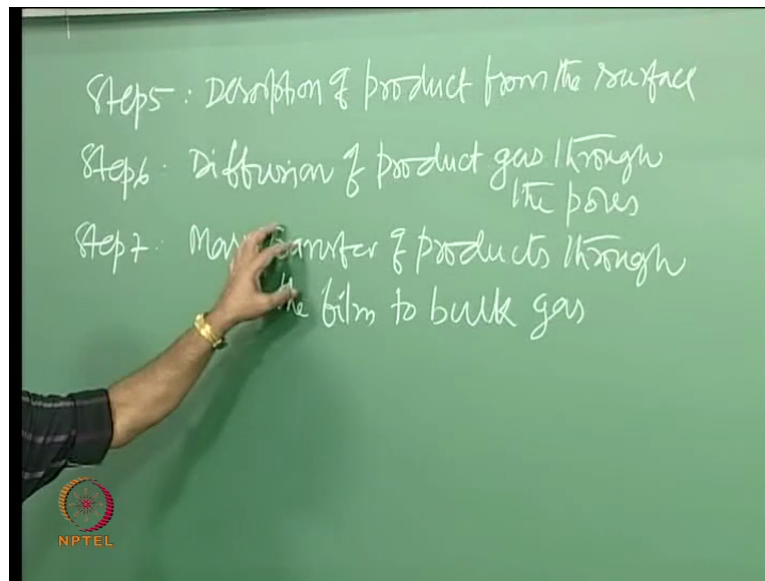 Step5: Desorption of product from the surface
Step6: Diffusion of product gas through
the pores
Step7: Mass transfer of products through
the film to bulk gas
NPTEL